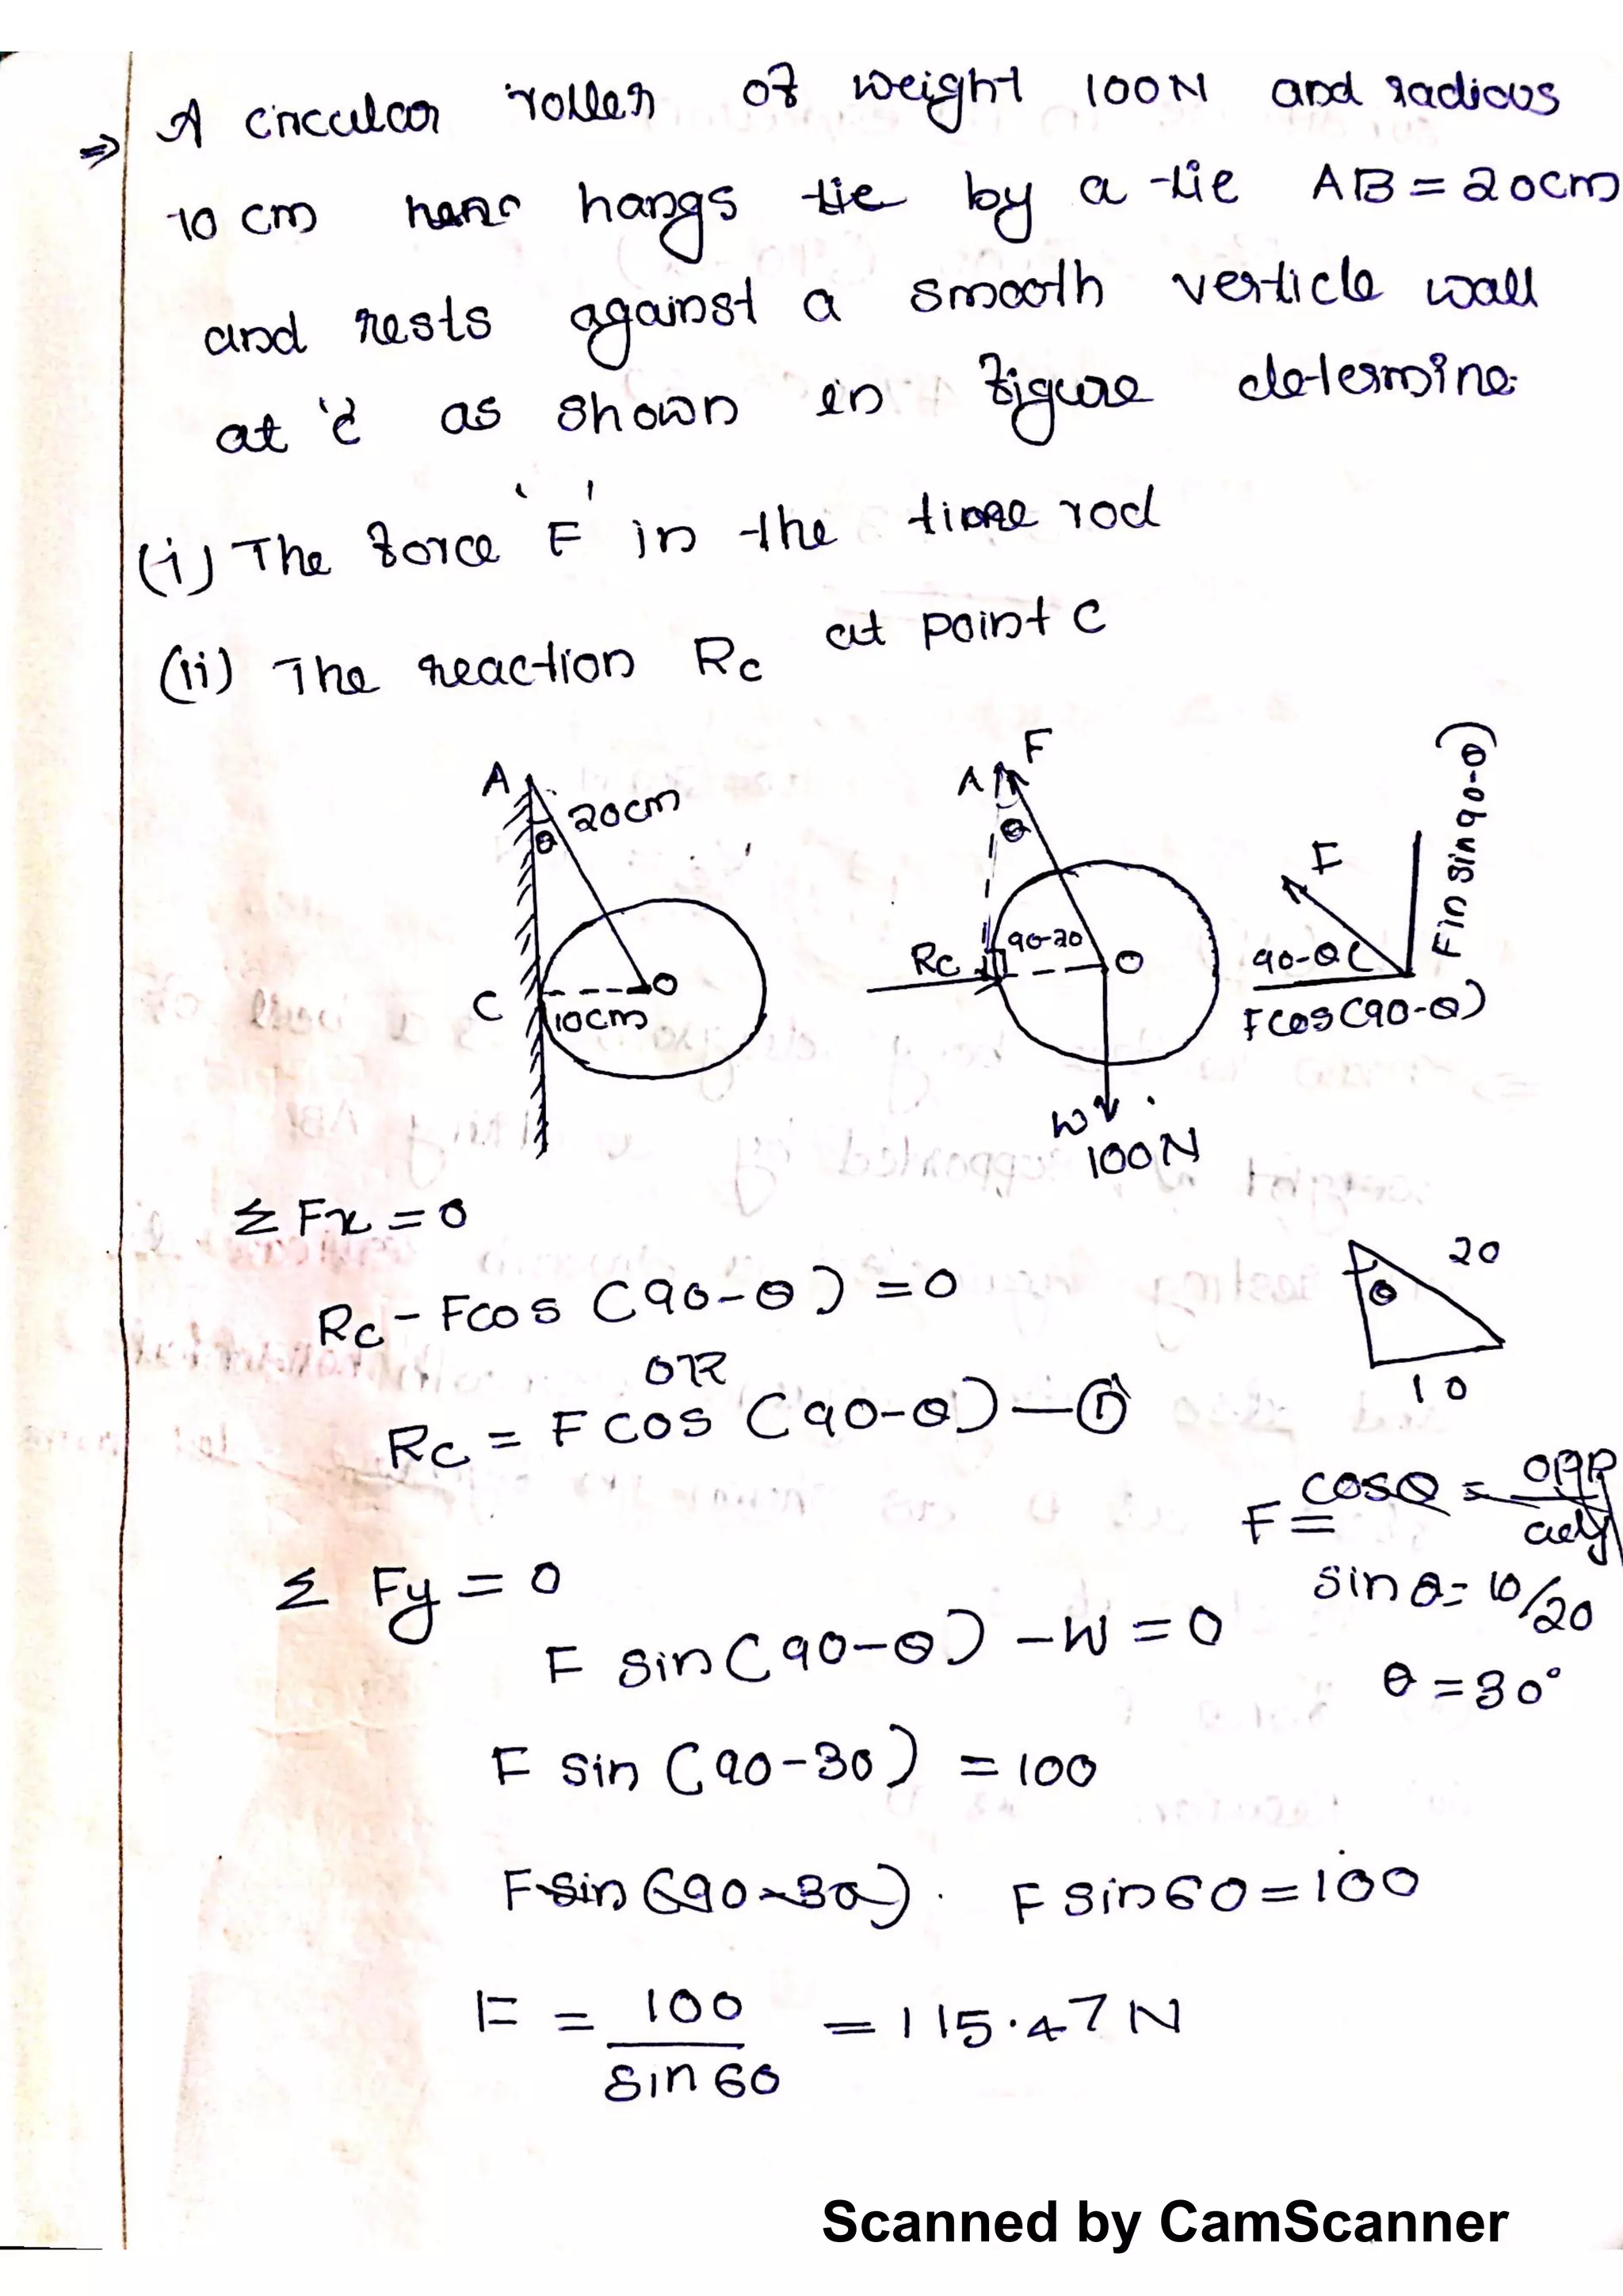 ⇒ A circular roller of weight 100N and radious
10 cm hangs tie by a tie AB = 20cm
and rests against a smooth verticle wall
at 'c' as shown in figure determine
(i) The force 'F' in the rod
(ii) The reaction Rc at point C
A
20cm
θ
C
O
10cm
A
F
θ
Rc
90-20
O
W
100N
F
90-θ
F cos(90-θ)
F sin 90-θ)
Σ Fx = 0
Rc - Fcos (90-θ) = 0
OR
Rc = F cos (90-θ) — ①
20
θ
10
F = cosθ = opp/adj
sin θ = 10/20
θ = 30°
Σ Fy = 0
F sin (90-θ) - W = 0
F sin (90-30) = 100
F sin (90-30) . F sin 60 = 100
F = 100/sin 60 = 115.47 N
Scanned by CamScanner